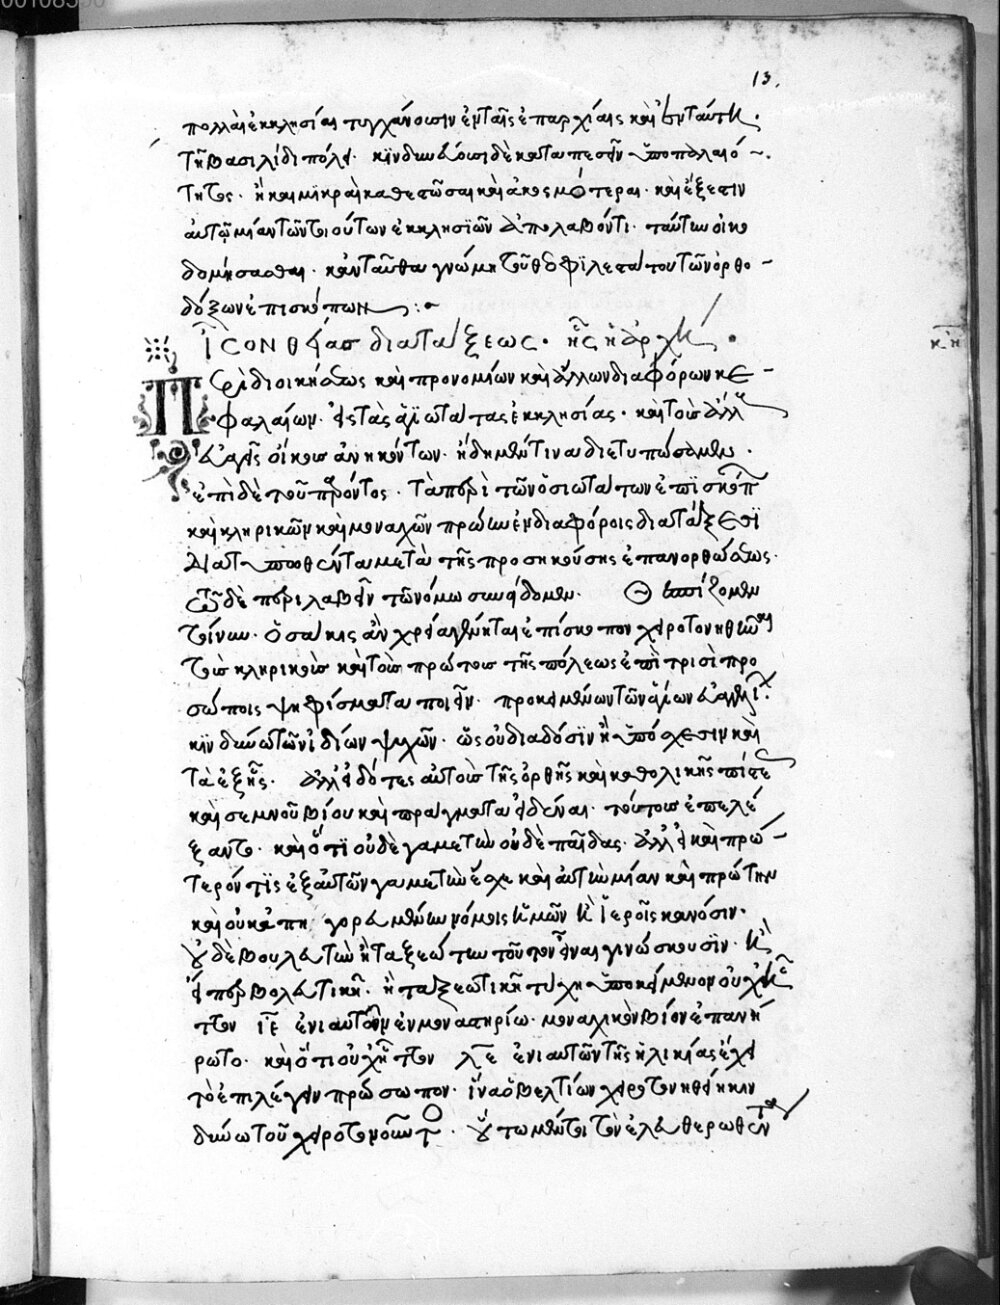 13.
πολλαὶ ἐκκλησίαι τυγχάνουσιν ἐν ταῖς ἐπαρχίαις καὶ ἐν ταύτη
τῆ βασιλίδι πόλει. κινδυνεύουσι δὲ καταπεσεῖν ὑπὸ παλαιό-
τητος. ἢ καὶ μικραὶ καθεστῶσαι καὶ ἄκοσμότεραι. καὶ ἔξεστιν
αὐτῷ μίαν τῶν τοιούτων ἐκκλησιῶν ἀπολαβόντι. ταύτην οἰκο
δομήσασθαι. κἀνταῦθα γνώμη τοῦ θεοφιλεστάτου τῶν ὀρθο-
δόξων ἐπισκόπων
Ἴσον θείας διατάξεως. ἧς ἡ ἀρχὴ.
κη
Περὶ διοικήσεως καὶ προνομίων καὶ ἄλλων διαφόρων κε-
φαλαίων. εἰς τὰς ἁγιωτάτας ἐκκλησίας. καὶ τοὺς ἄλλους
εὐαγεῖς οἴκους ἀνηκόντων. ἤδη μέν τινα διετυπώσαμεν.
ἐπὶ δὲ τοῦ παρόντος. τὰ περὶ τῶν ὁσιωτάτων ἐπισκόπων
καὶ κληρικῶν καὶ μοναχῶν πρώην ἐν διαφόροις διατάξεσι
διατυπωθέντα μετὰ τῆς προσηκούσης ἐπανορθώσεως.
τῷδε περιλαβεῖν τῶ νόμω συνείδομεν. Θεσπίζομεν
τοίνυν. ὁσάκις ἂν χρεία γένηται ἐπίσκοπον χειροτονηθῆναι
τοὺς κληρικοὺς καὶ τοὺς πρώτους τῆς πόλεως ἐπὶ τρισὶ προ
σώποις ψηφίσματα ποιεῖν. προκειμένων τῶν ἁγίων εὐαγγελίων.
κινδύνω τῶν ἰδίων ψυχῶν. ὡς οὐ διὰ δόσιν ἢ ὑπόσχεσιν καὶ
τὰ ἑξῆς. ἀλλ' εἰδότες αὐτοὺς τῆς ὀρθῆς καὶ καθολικῆς πίστεως
καὶ σεμνοῦ βίου καὶ πράγματα εἰδέναι. τούτους ἐπελέ
ξαντο. καὶ ὅτι οὐδὲ γαμετὴν οὐδὲ παῖδας. ἀλλ' εἰ καὶ πρώ-
τερόν τις ἐξ αὐτῶν γαμετὴν ἔσχε καὶ αὐτὴν μίαν καὶ πρώτην
καὶ οὐκ ἀπηγορευμένην νόμοις ἡμῶν καὶ ἱεροῖς κανόσιν.
οὐδὲ βουλευτὴν ἢ ταξεώτην τοῦτον εἶναι γινώσκουσιν. καὶ
εἴπερ βουλευτικῆ. ἢ ταξεωτικῆ τύχη ὑποκείμενον οὐχ ἧτ
τον ιε ἐνιαυτῶν ἐν μοναστηρίω. μοναχικὸν βίον ἐπλή
ρωτο. καὶ ὅτι οὐχ ἧττον λε ἐνιαυτῶν τῆς ἡλικίας ἔχει
τὸ ἐπιλεγὲν πρώσωπον. ἵνα ὁ βελτίων χειροτονηθείη κιν
δύνω τοῦ χειροτονοῦντος. οὕτω μέντοι τὸν ἐλευθερωθέντα